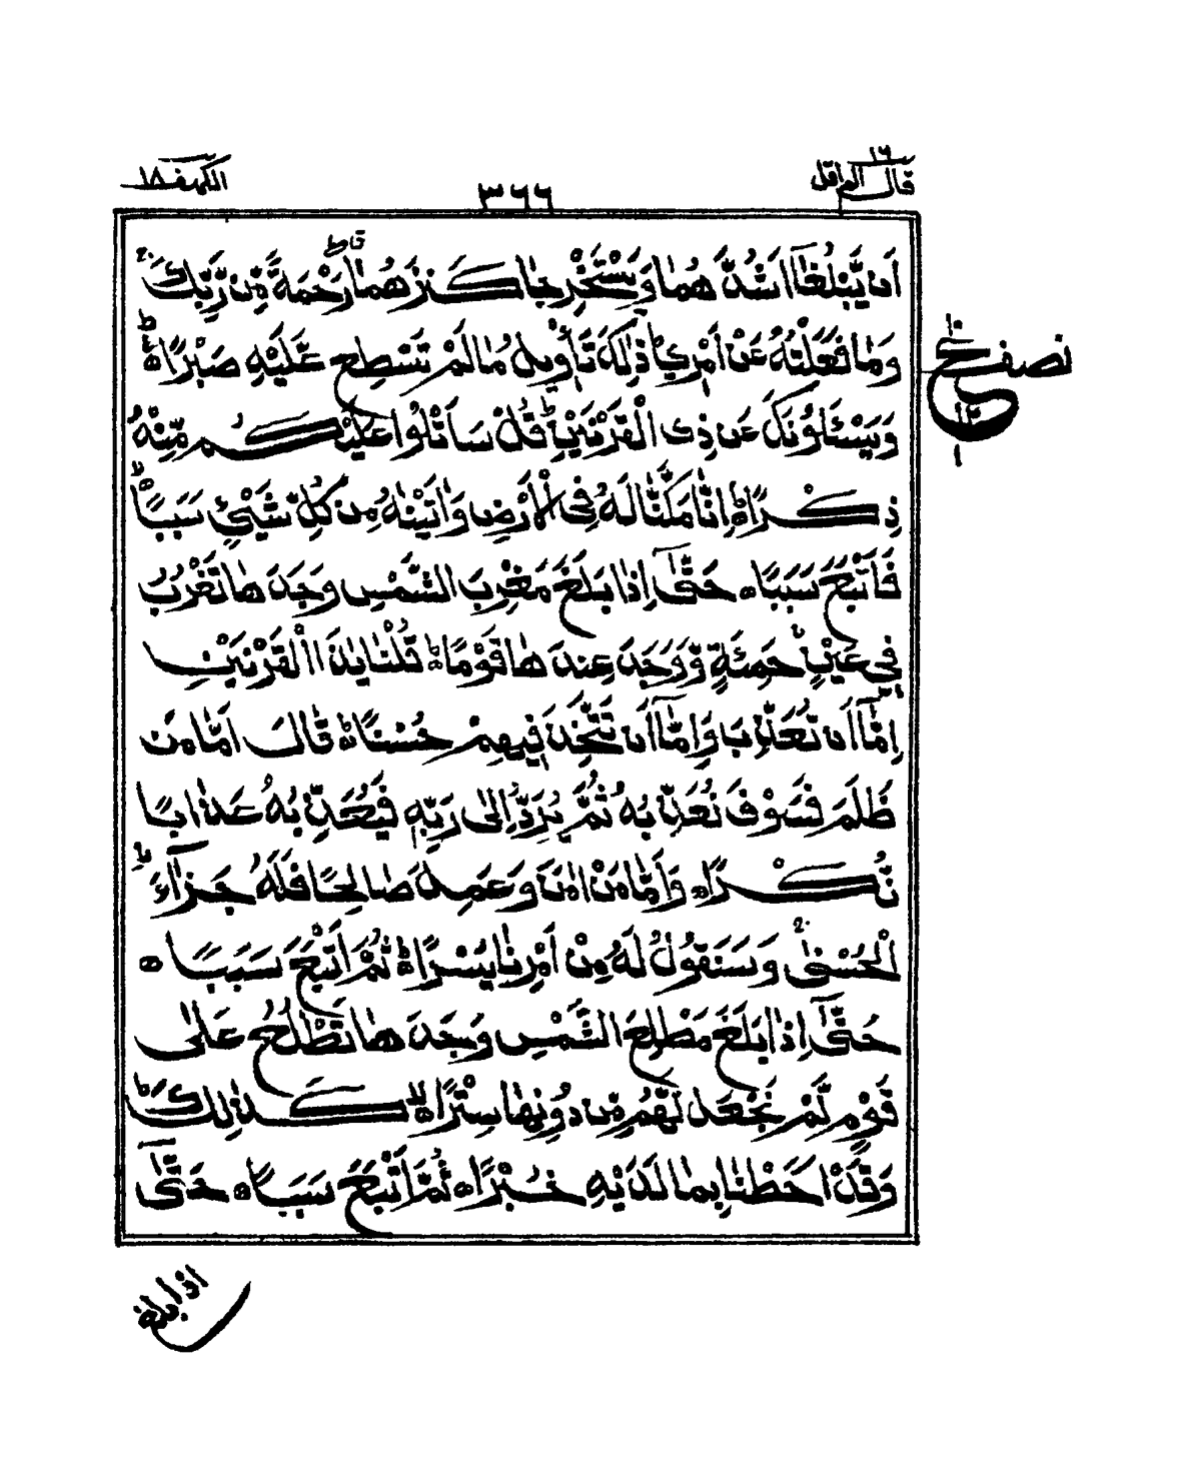 قال الم اقل ١٦
٣٦٦
الكهف ١٨
اَنْ يَّبْلُغَآ اَشُدَّ هُمَا وَيَسْتَخْرِجَا كَنْزَهُمَا رَحْمَةً مِّنْ رَّبِّكَ
وَمَا فَعَلْتُهٗ عَنْ اَمْرِيْ ذٰلِكَ تَاْوِيْلُ مَا لَمْ تَسْطِعْ عَّلَيْهِ صَبْرًا
وَيَسْئَلُوْنَكَ عَنْ ذِي الْقَرْنَيْنِ قُلْ سَاَتْلُوْا عَلَيْكُمْ مِّنْهُ
ذِكْرًا اِنَّا مَكَّنَّا لَهٗ فِي الْاَرْضِ وَاٰتَيْنٰهُ مِنْ كُلِّ شَيْئٍ سَبَبًا
فَاَتْبَعَ سَبَبًا حَتّٰٓى اِذَا بَلَغَ مَغْرِبَ الشَّمْسِ وَجَدَ هَا تَغْرُبُ
فِيْ عَيْنٍ حَمِئَةٍ وَّوَجَدَ عِنْدَ هَا قَوْمًا قُلْنَا يٰذَا الْقَرْنَيْنِ
اِمَّآ اَنْ تُعَذِّبَ وَاِمَّآ اَنْ تَتَّخِذَ فِيْهِمْ حُسْنًا قَالَ اَمَّا مَنْ
ظَلَمَ فَسَوْفَ نُعَذِّبُهٗ ثُمَّ يُرَدُّ اِلٰى رَبِّهٖ فَيُعَذِّبُهٗ عَذَابًا
نُّكْرًا وَاَمَّا مَنْ اٰمَنَ وَعَمِلَ صَالِحًا فَلَهٗ جَزَآءً
الْحُسْنٰى وَسَنَقُوْلُ لَهٗ مِنْ اَمْرِنَا يُسْرًا ثُمَّ اَتْبَعَ سَبَبًا
حَتّٰٓى اِذَا بَلَغَ مَطْلِعَ الشَّمْسِ وَجَدَ هَا تَطْلُعُ عَلٰى
قَوْمٍ لَّمْ نَجْعَلْ لَّهُمْ مِّنْ دُوْنِهَا سِتْرًا كَذٰلِكَ
وَقَدْ اَحَطْنَا بِمَا لَدَيْهِ خُبْرًا ثُمَّ اَتْبَعَ سَبَبًا حَتّٰٓى
اذا بلغ